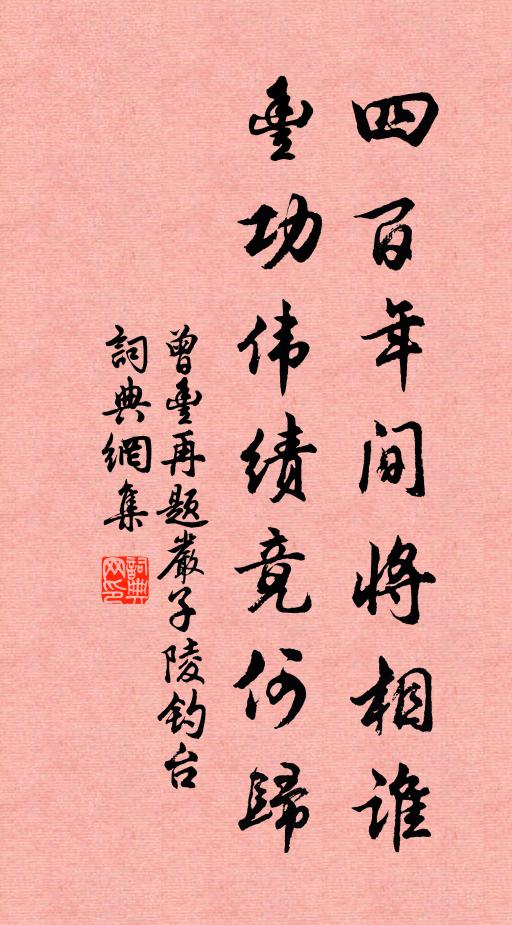 四百年间将相谁
豊功伟绩竟何歸
曾豊再题嚴子陵钓台
詞典網集
詞典网印